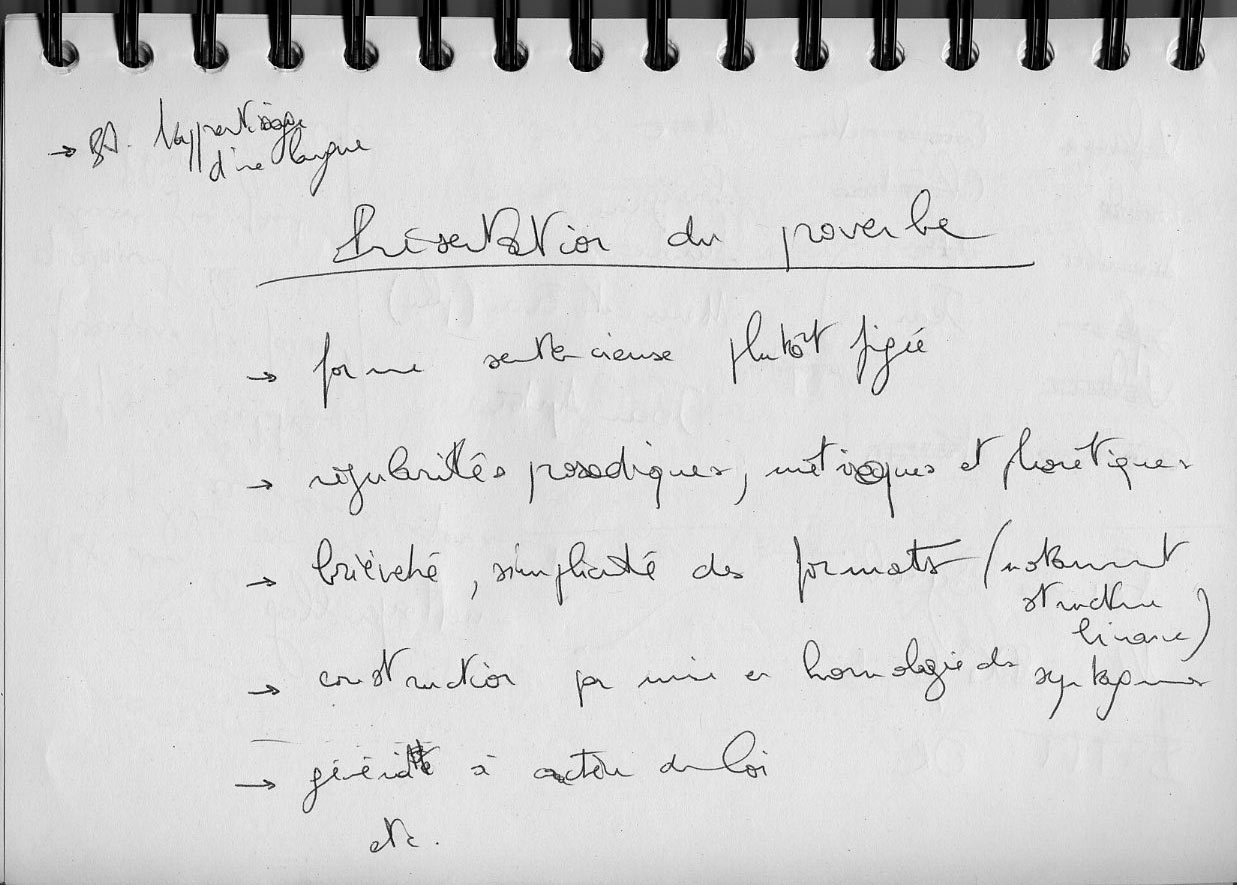 → L'apprentissage
d'une langue
Présentation du proverbe
→ forme sentencieuse plutôt figée
→ régularités prosodiques, métriques et phonétiques
→ brièveté, simplicité des formats (notamment
structure
binaire)
→ construction par mise en homologie de syntagmes
→ généricité à caractère de loi
etc.